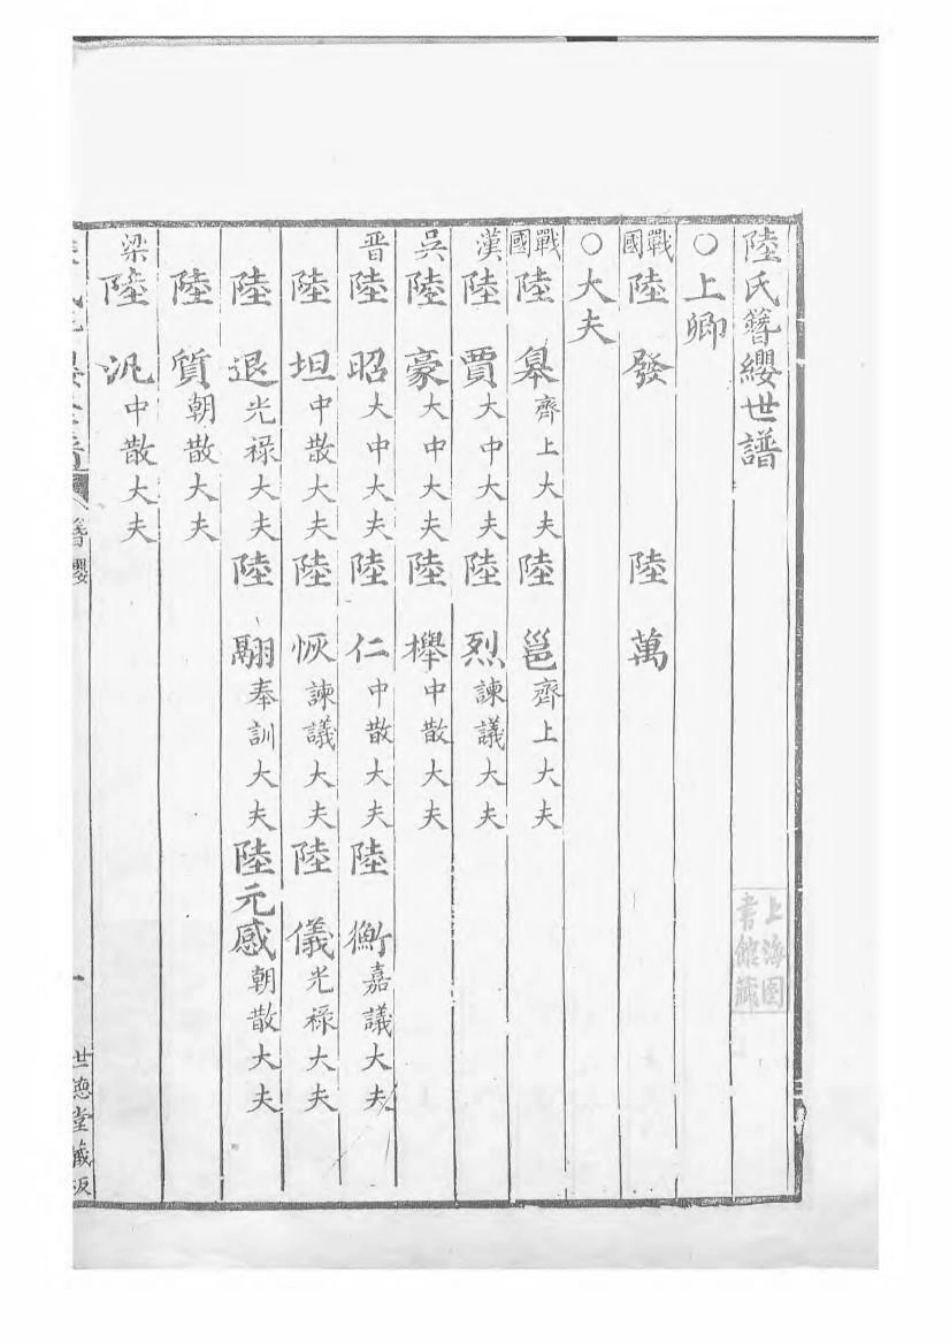 陸氏簪纓世譜
○上卿
戰國陸發 陸萬
○大夫
戰國陸皐齊上大夫陸邕齊上大夫
漢陸賈大中大夫陸烈諫議大夫
吳陸豪大中大夫陸櫸中散大夫
晋陸昭大中大夫陸仁中散大夫陸衡嘉議大夫
陸坦中散大夫陸恢諫議大夫陸儀光禄大夫
陸退光禄大夫陸翮奉訓大夫陸元感朝散大夫
陸質朝散大夫
梁陸汎中散大夫
簪纓 一 世德堂藏板
上海图書館藏